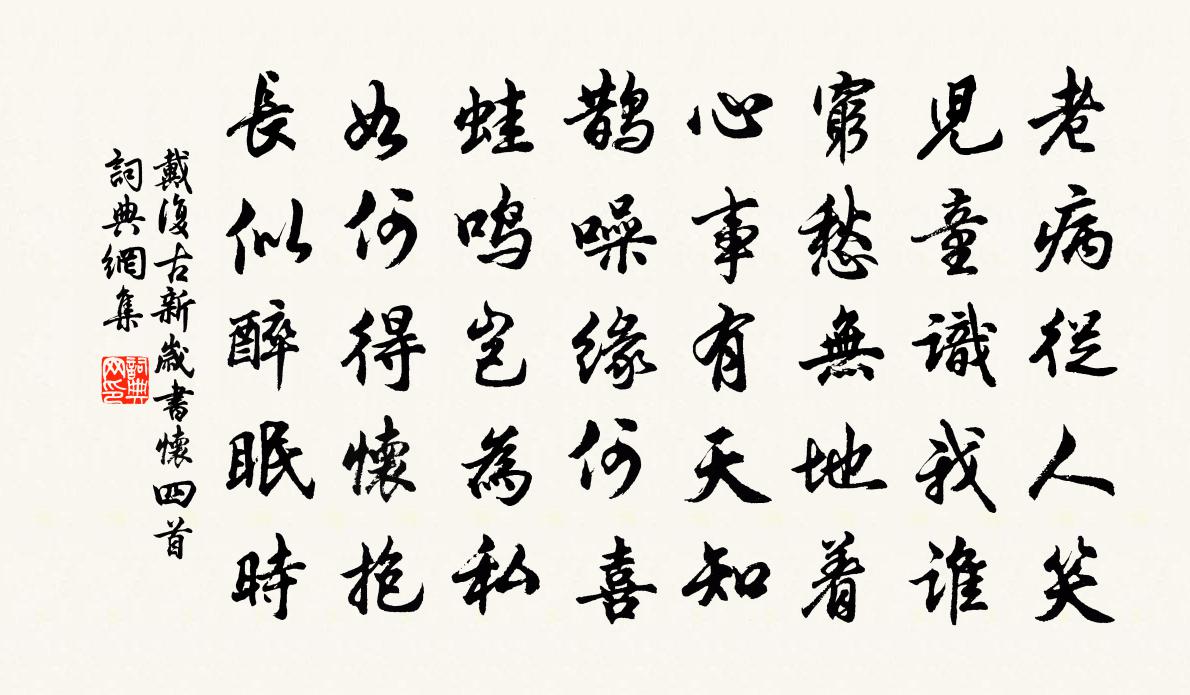 老病從人笑
兒童識我誰
窮愁無地着
心事有天知
鵲噪緣何喜
蛙鳴岂為私
如何得懷抱
長似醉眠時
戴復古新歲書懷四首
詞典網集
詞典网印